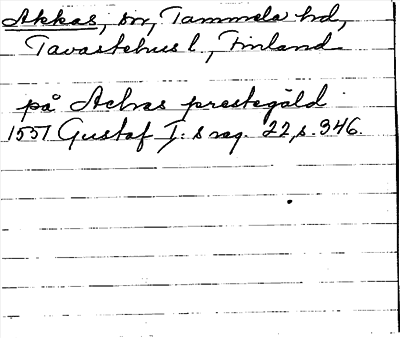 Akkas, sn, Tammela hd,
Tavastehus l., Finland
på Achas prestegäld
1551 Gustaf I:s reg. 22, s. 346.